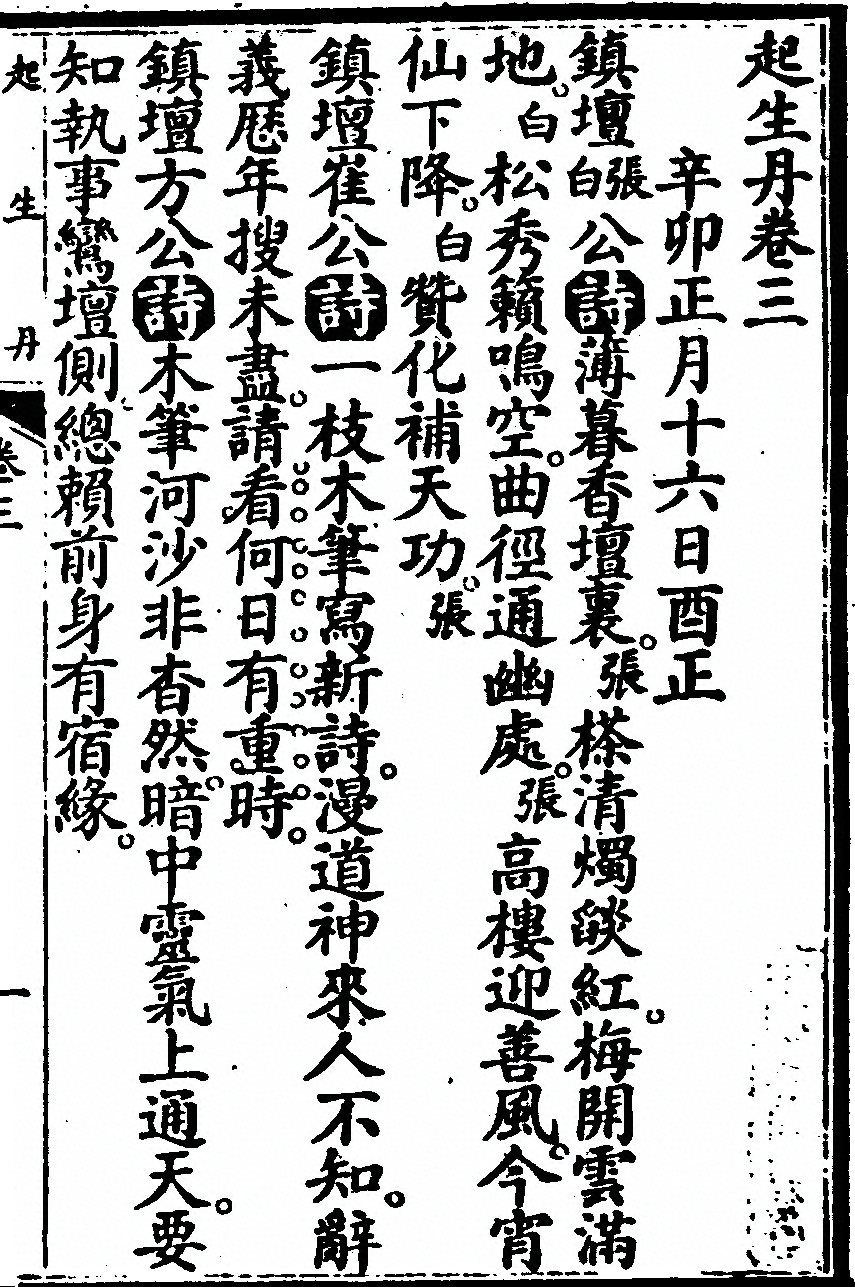 起生丹卷三
辛卯正月十六日酉正
鎮壇張白公詩薄暮香壇裏。張榢清燭燄紅。梅開雲滿
地。白松秀籟鳴空。曲徑通幽處。張高樓迎善風。今宵
仙下降。白贊化補天功。張
鎮壇崔公詩一枝木筆寫新詩。漫道神來人不知。辭
義歷年搜未盡。請看何日有重時。
鎮壇方公詩木筆河沙非杳然。暗中靈氣上通天。要
知執事鸞壇側。總賴前身有宿緣。
起生丹
卷三
一